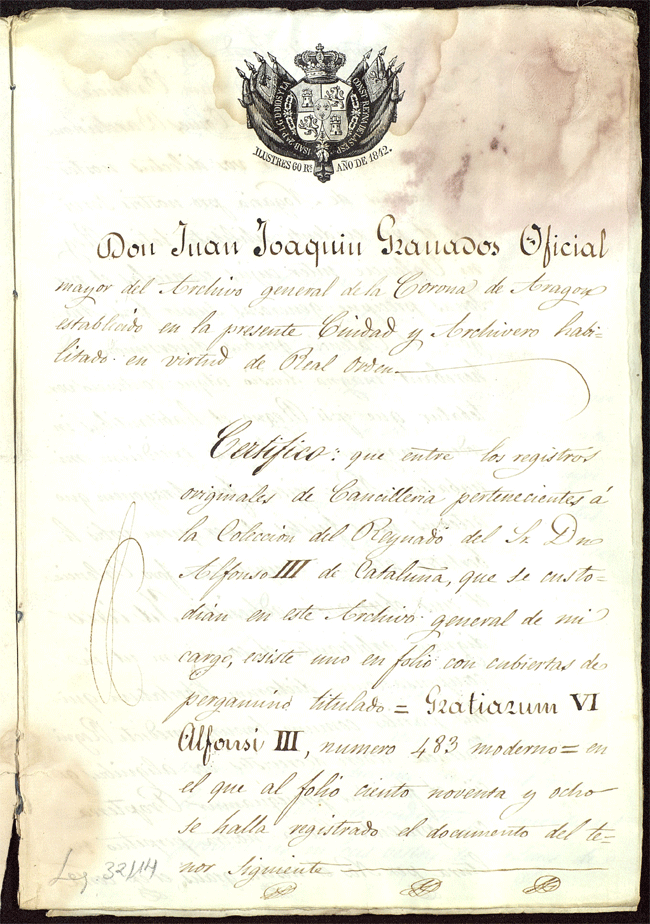 ISAB. 2ª P. L. G. D DIOS Y LA CONST. REYNA DE LAS ESP.
ILUSTRES 60 Rs. AÑO DE 1842.
Don Juan Joaquin Granados Oficial
mayor del Archivo general de la Corona de Aragon
establecido en la presente Ciudad y Archivero habi=
litado en virtud de Real orden.
Certifico: que entre los registros
originales de Cancilleria pertenecientes á
la Coleccion del Reynado del Sr. Dn
Alfonso III de Cataluña, que se custo=
dian en este Archivo general de mi
cargo, ecsiste uno en folio con cubiertas de
pergamino titulado = Gratiarum VI
Alfonsi III, numero 483 moderno = en
el que al folio ciento noventa y ocho
se halla registrado el documento del te=
nor siguiente
Leg. 32/14